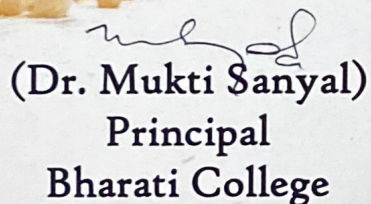 (Dr. Mukti Sanyal)
Principal
Bharati College